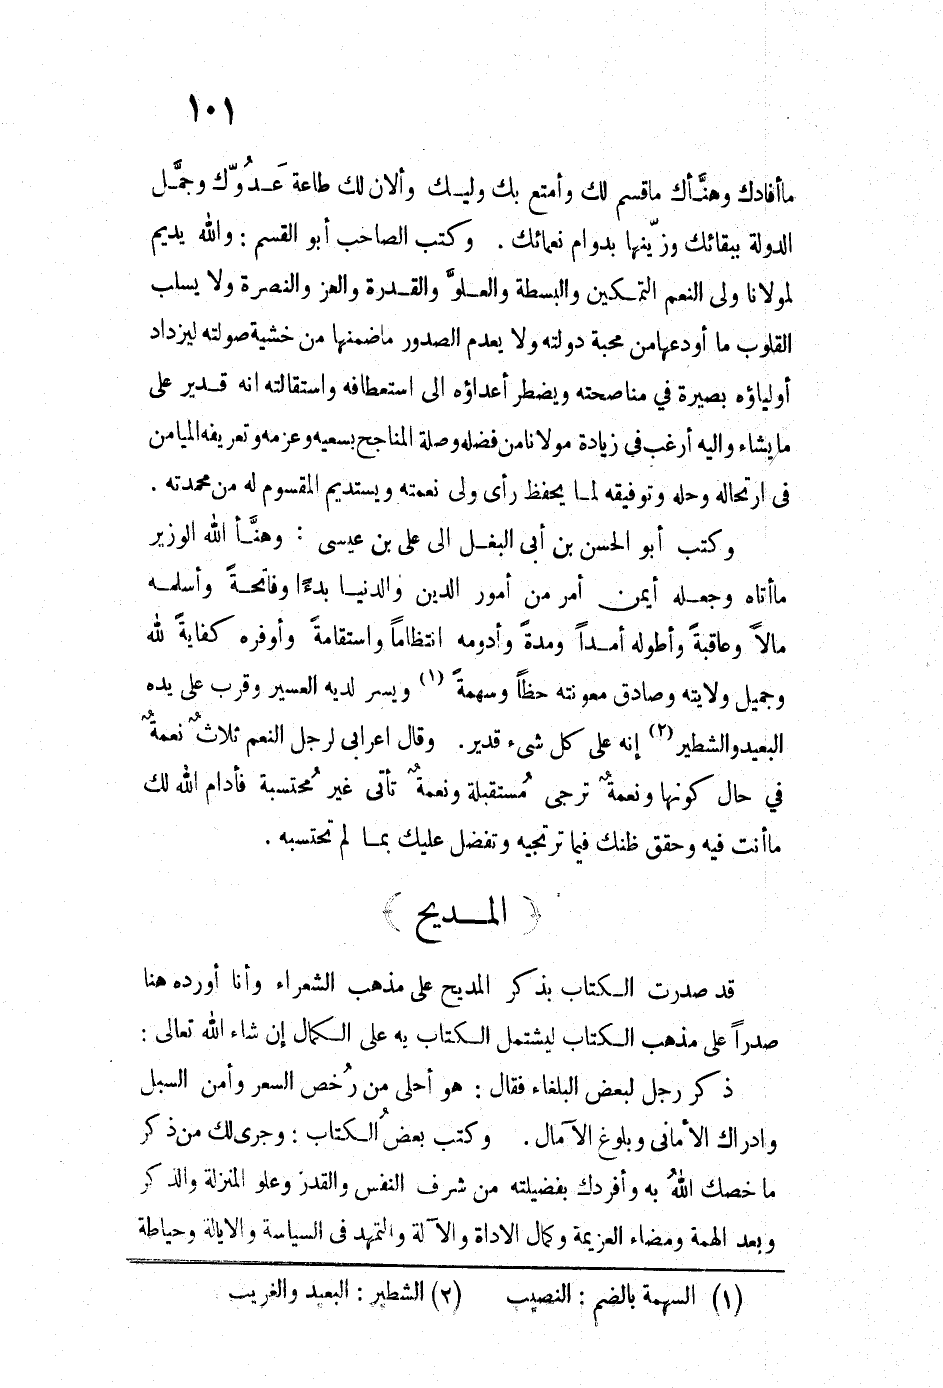 ١٠١
ماأفادك وهنَّأك ماقسم لك وأمتع بك وليـك وألان لك طاعة عَـدُوّك وجمَّـل
الدولة ببقائك وزيّنها بدوام نعمائك . وكتب الصاحب أبو القسم : والله يديم
لمولانا ولى النعم التمـكين والبسطة والعـلوَّ والقـدرة والعز والنصرة ولا يسلب
القلوب ما أودعهامن محبة دولته ولا يعدم الصدور ماضمنها من خشية صولته ليزداد
أولياؤه بصيرة في مناصحته ويضطر أعداؤه الى استعطافه واستقالته انه قـدير على
مايشاء واليه أرغب في زيادة مولانامن فضله وصلة المناجح بسعيه وعزمه وتعريفه الميامن
فى ارتحاله وحله وتوفيقه لمـا يحفظ رأى ولى نعمته ويستديم المقسوم له من محمدته .
وكتب أبو الحسن بن أبي البغـل الى على بن عيسى : وهنَّـأ الله الوزير
ماأتاه وجعـله أيمن أمر من أمور الدين والدنيـا بدءًا وفاتحـةً وأسلمـه
مالاً وعاقبةً وأطوله أمـداً ومدةً وأدومه انتظاماً واستقامةً وأوفره كفايةً لله
وجميل ولايته وصادق معونته حظاً وسهمةً (١) ويسر لديه العسير وقرب على يده
البعيد والشطير (٢) إنه على كل شىء قدير . وقال اعرابى لرجل النعم ثلاثٌ نعمةٌ
في حال كونها ونعمةٌ ترجى مُستقبلة ونعمةٌ تأتى غير مُحتسبة فأدام الله لك
ماأنت فيه وحقق ظنك فيما ترتجيه وتفضل عليك بمـا لم تحتسبه .
﴿ المـديح ﴾
قد صدرت الـكتاب بذكر المديح على مذهب الشعراء وأنا أورده هنا
صدراً على مذهب الـكتاب ليشتمل الـكتاب به على الـكمال إن شاء الله تعالى :
ذكر رجل لبعض البلغاء فقال : هو أحلى من رُخص السعر وأمن السبل
وادراك الأمانى وبلوغ الآمال . وكتب بعضُ الـكتاب : وجرى لك من ذكر
ما خصك اللهُ به وأفردك بفضيلته من شرف النفس والقدر وعلو المنزلة والذكر
وبعد الهمة ومضاء العزيمة وكمال الاداة والآلة والتمهد فى السياسة والايالة وحياطة
(١) السهمة بالضم : النصيب (٢) الشطير : البعيد والغريب